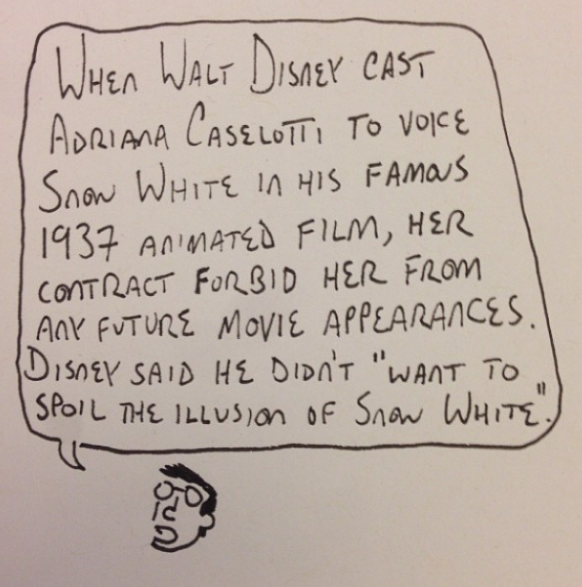 WHEN WALT DISNEY CAST
ADRIANA CASELOTTI TO VOICE
SNOW WHITE IN HIS FAMOUS
1937 ANIMATED FILM, HER
CONTRACT FORBID HER FROM
ANY FUTURE MOVIE APPEARANCES.
DISNEY SAID HE DIDN'T "WANT TO
SPOIL THE ILLUSION OF SNOW WHITE".